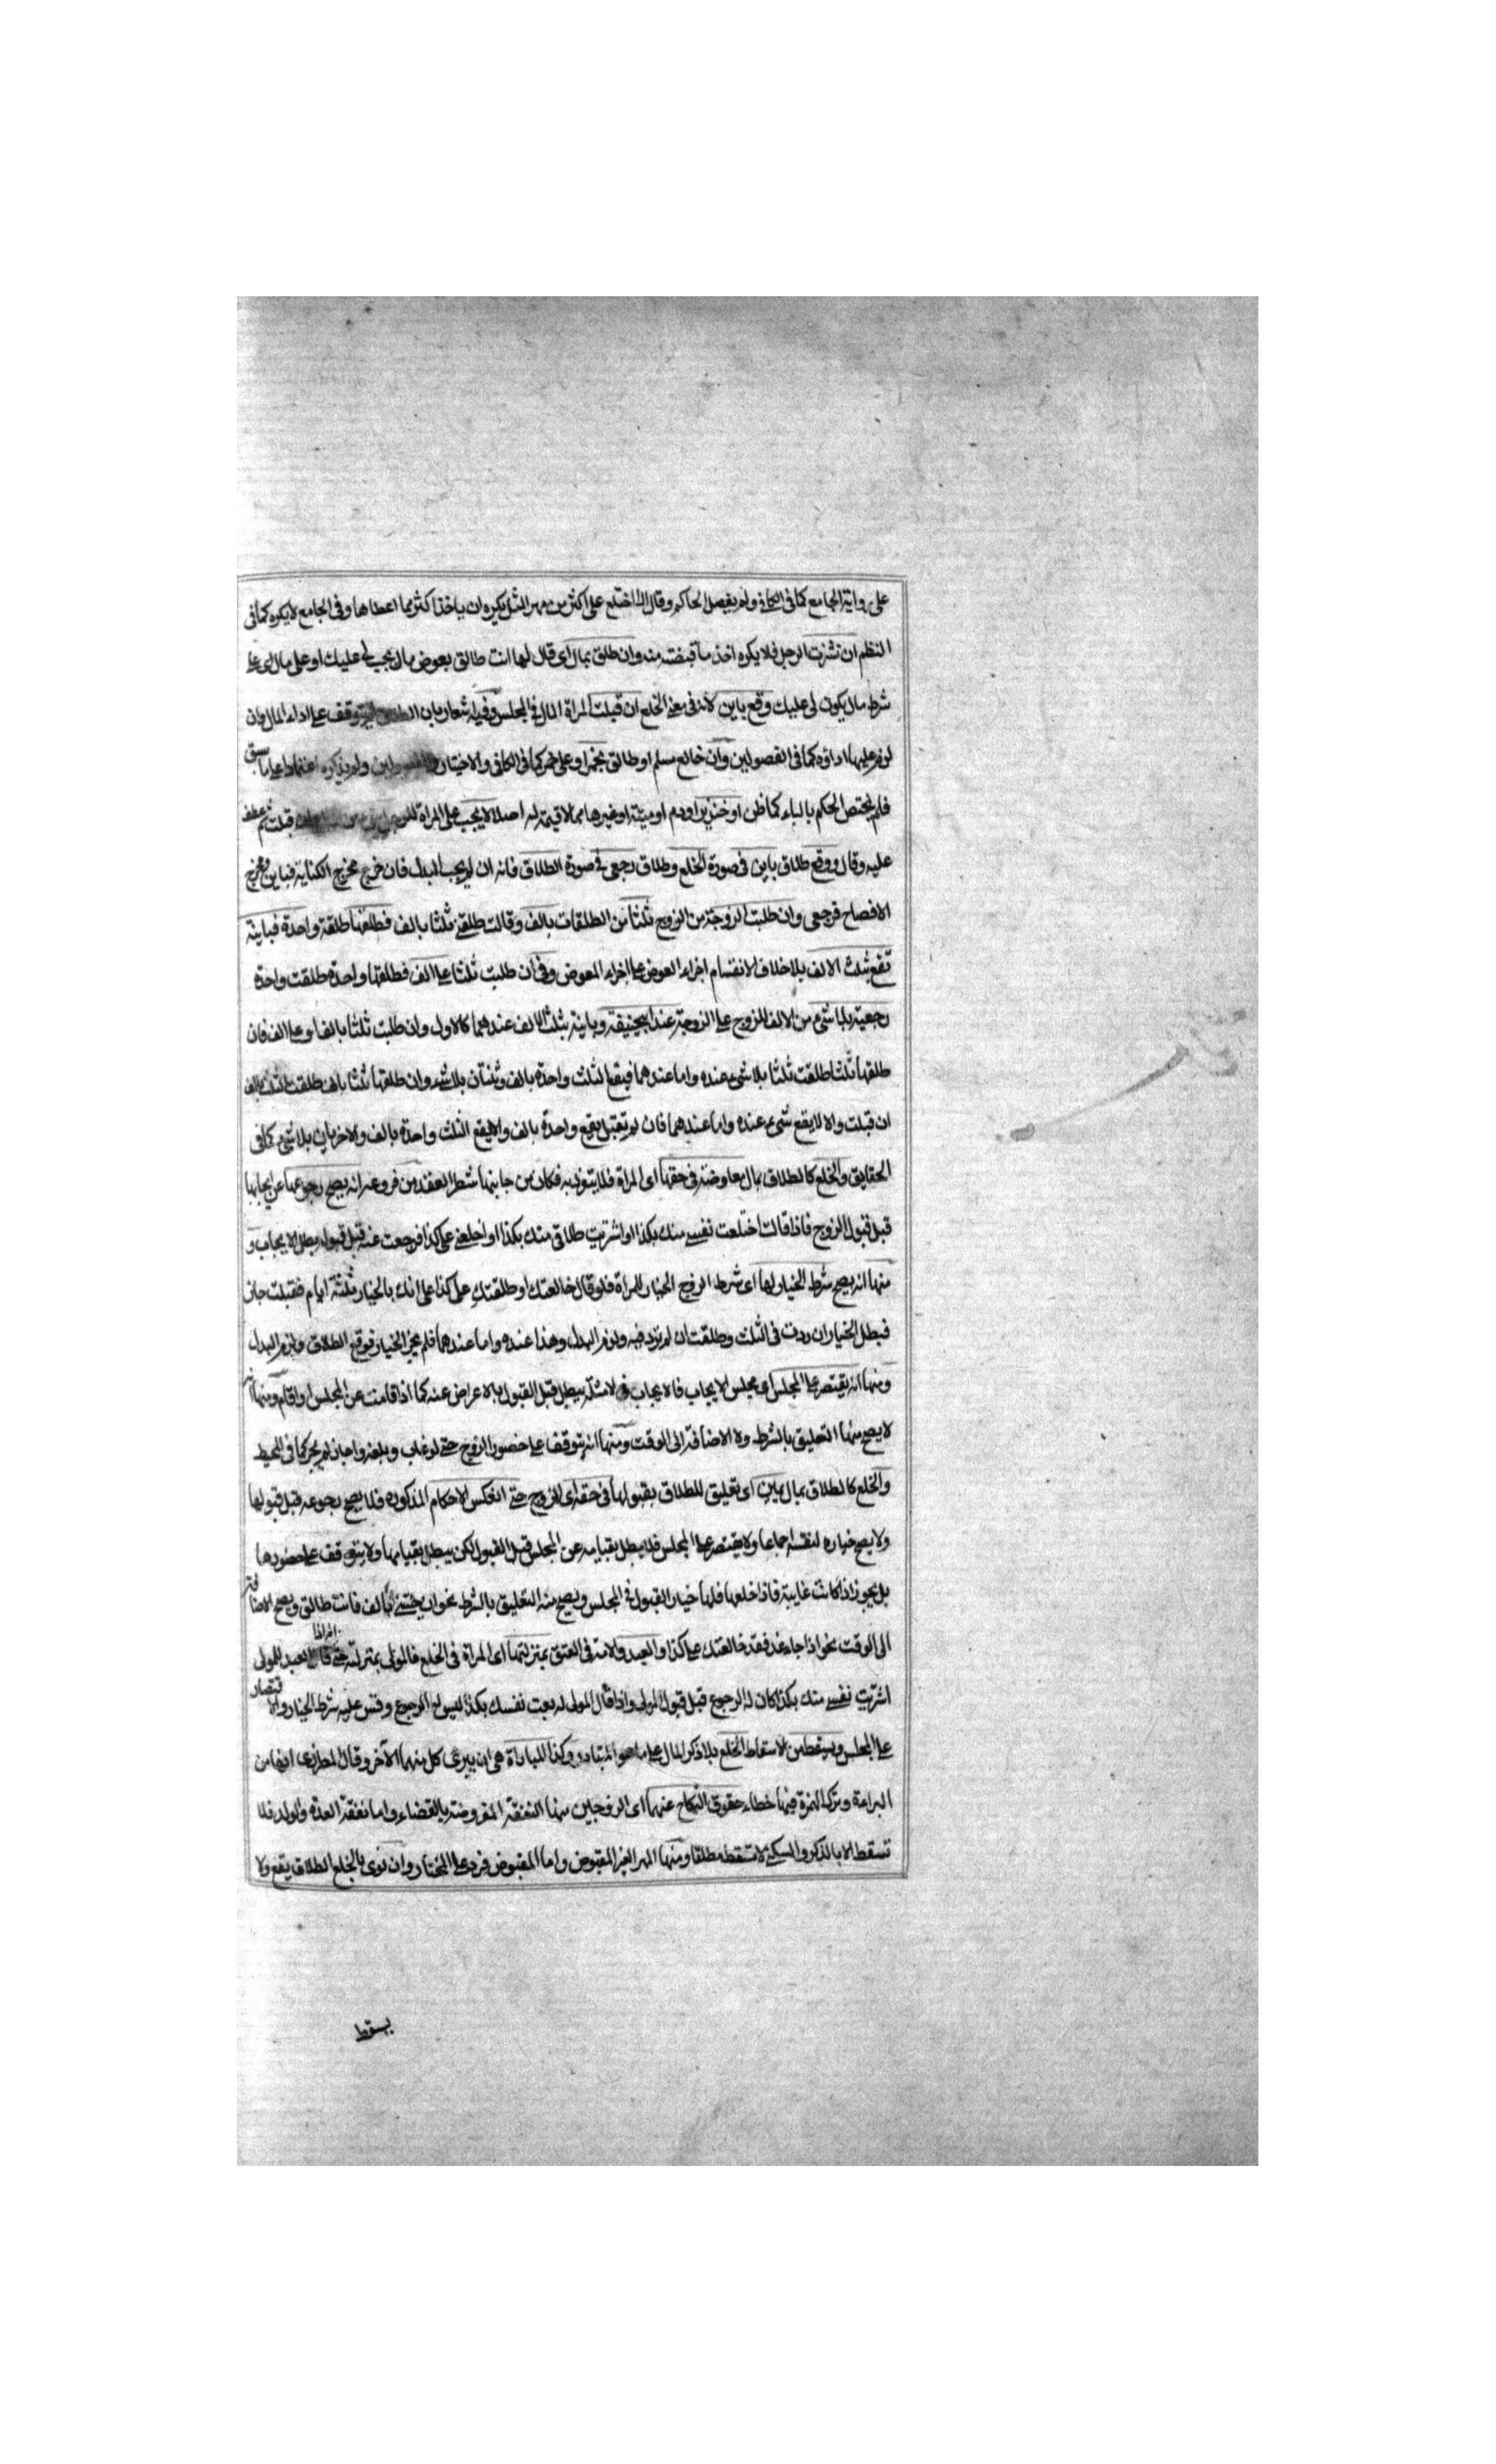 على رواية الجامع كما في الكافي ولم يفصل الحاكم وقال اذا اختلع على اكثر من مهر المثل يكره ان ياخذ اكثر مما اعطاها وفي الجامع لا يكره كما في
النظم ان نشزت الرجل فلا يكره اخذ ما قبضته منه وان طلق بمال اى قال لها انت طالق بعوض مال يجب لى عليك او على مال اى على
شرط مال يكون لى عليك وقع باين لانه فى معنى الخلع ان قبلت المراة المال في المجلس وفيه اشعار بان الطلاق لم يتوقف على اداء المال وان
لزم عليها اداؤه كما فى الفصولين وان خالع مسلم او طالق بخمر او على خمر كما فى الكافى والاختيار ولم يذكره اعتمادا على ما سبق
فلم يختص الحكم بالباء كما ظن او خنزير او دم او ميتة او غيرها مما لا قيمة له اصلا لا يجب على المراة قبلت ثم عطف
عليه وقال ووقع طلاق باين فى صورة الخلع وطلاق رجعى فى صورة الطلاق فانه ان لم يجب البدل فان خرج مخرج الكناية فباين ومخرج
الافصاح فرجعى وان طلبت الزوجة من الزوج ثلثا من الطلقات بالف وقالت طلقنى ثلثا بالف فطلقها طلقة واحدة فباينة
تقع بثلث الالف بلا خلاف لانقسام اجزاء العوض على اجزاء المعوض وفى ان طلبت ثلثا على الف فطلقها واحدة طلقت واحدة
رجعية بلا شئ من الالف للزوج على الزوجة عند ابيحنيفة وباينة بثلث الالف عندهما كالاول وان طلبت ثلثا بالف او على الف فان
طلقها ثلثا طلقت ثلثا بلا شئ عنده واما عندهما فيقع الثلث واحدة بالف وثنتان بلا شئ وان طلقها ثلثا بالف طلقت الثلث بالف
ان قبلت والا لا يقع شئ عنده واما عندهما فان لم تقبل يقع واحدة بالف والا يقع الثلث واحدة بالف والاخريان بلا شئ كما فى
الحقايق والخلع كالطلاق بمال معاوضة فى حقها اى المراة فلا يتفرد به فكان من جانبها شطر العقد من فروعه انه يصح رجوعها عن ايجابها
قبل قبول الزوج فاذا قالت اختلعت نفسى منك بكذا او اشتريت طلاقى منك بكذا او اخلعنى على كذا فرجعت عنه قبل قبوله بطل الايجاب و
منها انه يصح شرط الخيار لها اى شرط الزوج الخيار للمراة فلو قال خالعتك او طلقتك على كذا على انك بالخيار ثلثة ايام فقبلت جاز
فبطل الخيار ان ردت فى الثلث وطلقت ان لم ترد فيه ولزم البدل وهذا عنده واما عندهما فلم يجز الخيار فوقع الطلاق ولزم البدل
ومنها انه يقتصر على المجلس اى مجلس الايجاب فالايجاب فى الامثلة يبطل قبل القبول بالاعراض عنه كما اذا قامت عن المجلس او اقام ومنها انه
لا يصح منها التعليق بالشرط ولا الاضافة الى الوقت ومنها انه يتوقف على حضور الزوج حتى لو غاب وبلغه واجاز لم يجز كما فى المحيط
والخلع كالطلاق بمال يمين اى تعليق للطلاق بقبولها فى حقه اى الزوج حتى انعكس الاحكام المذكورة فلا يصح رجوعه قبل قبولها
ولا يصح خياره لنفسه اجماعا ولا يقتصر على المجلس فلا يبطل بقيامه عن المجلس قبل القبول لكن يبطل بقيامها ولا يتوقف على حضورها
بل يجوز اذا كانت غايبة فاذا خلعها فلها خيار القبول فى المجلس ويصح منه التعليق بالشرط نحو ان جئتنى بالف فانت طالق ويصح الاضافة
الى الوقت نحو اذا جاء غد فقد خالعتك على كذا والعبد والامة فى العتق بمنزلتها اى المراة فى الخلع فالمولى بمنزلته حتى انه اذا قال العبد للمولى
اشتريت نفسى منك بكذا كان له الرجوع قبل قبول المولى واذا قال المولى له بعت نفسك بكذا ليس له الرجوع وقس عليه شرط الخيار والاقتصار
على المجلس ويسقط من الاسقاط الخلع بلا ذكر المال على ما هو المتبادر وكذا المباراة هى ان يبرئ كل منهما الآخر وقال المطرزى انها من
البراءة وترك الهمزة فيها خطاء حقوق النكاح عنهما اى الزوجين منها النفقة المفروضة بالقضاء واما نفقة العدة والولد فلا
تسقط الا بالذكر والسكنى لا تسقط مطلقا ومنها المهر الغير المقبوض واما المقبوض فرد على المختار وان نوى بالخلع الطلاق يقع ولا
يسقط